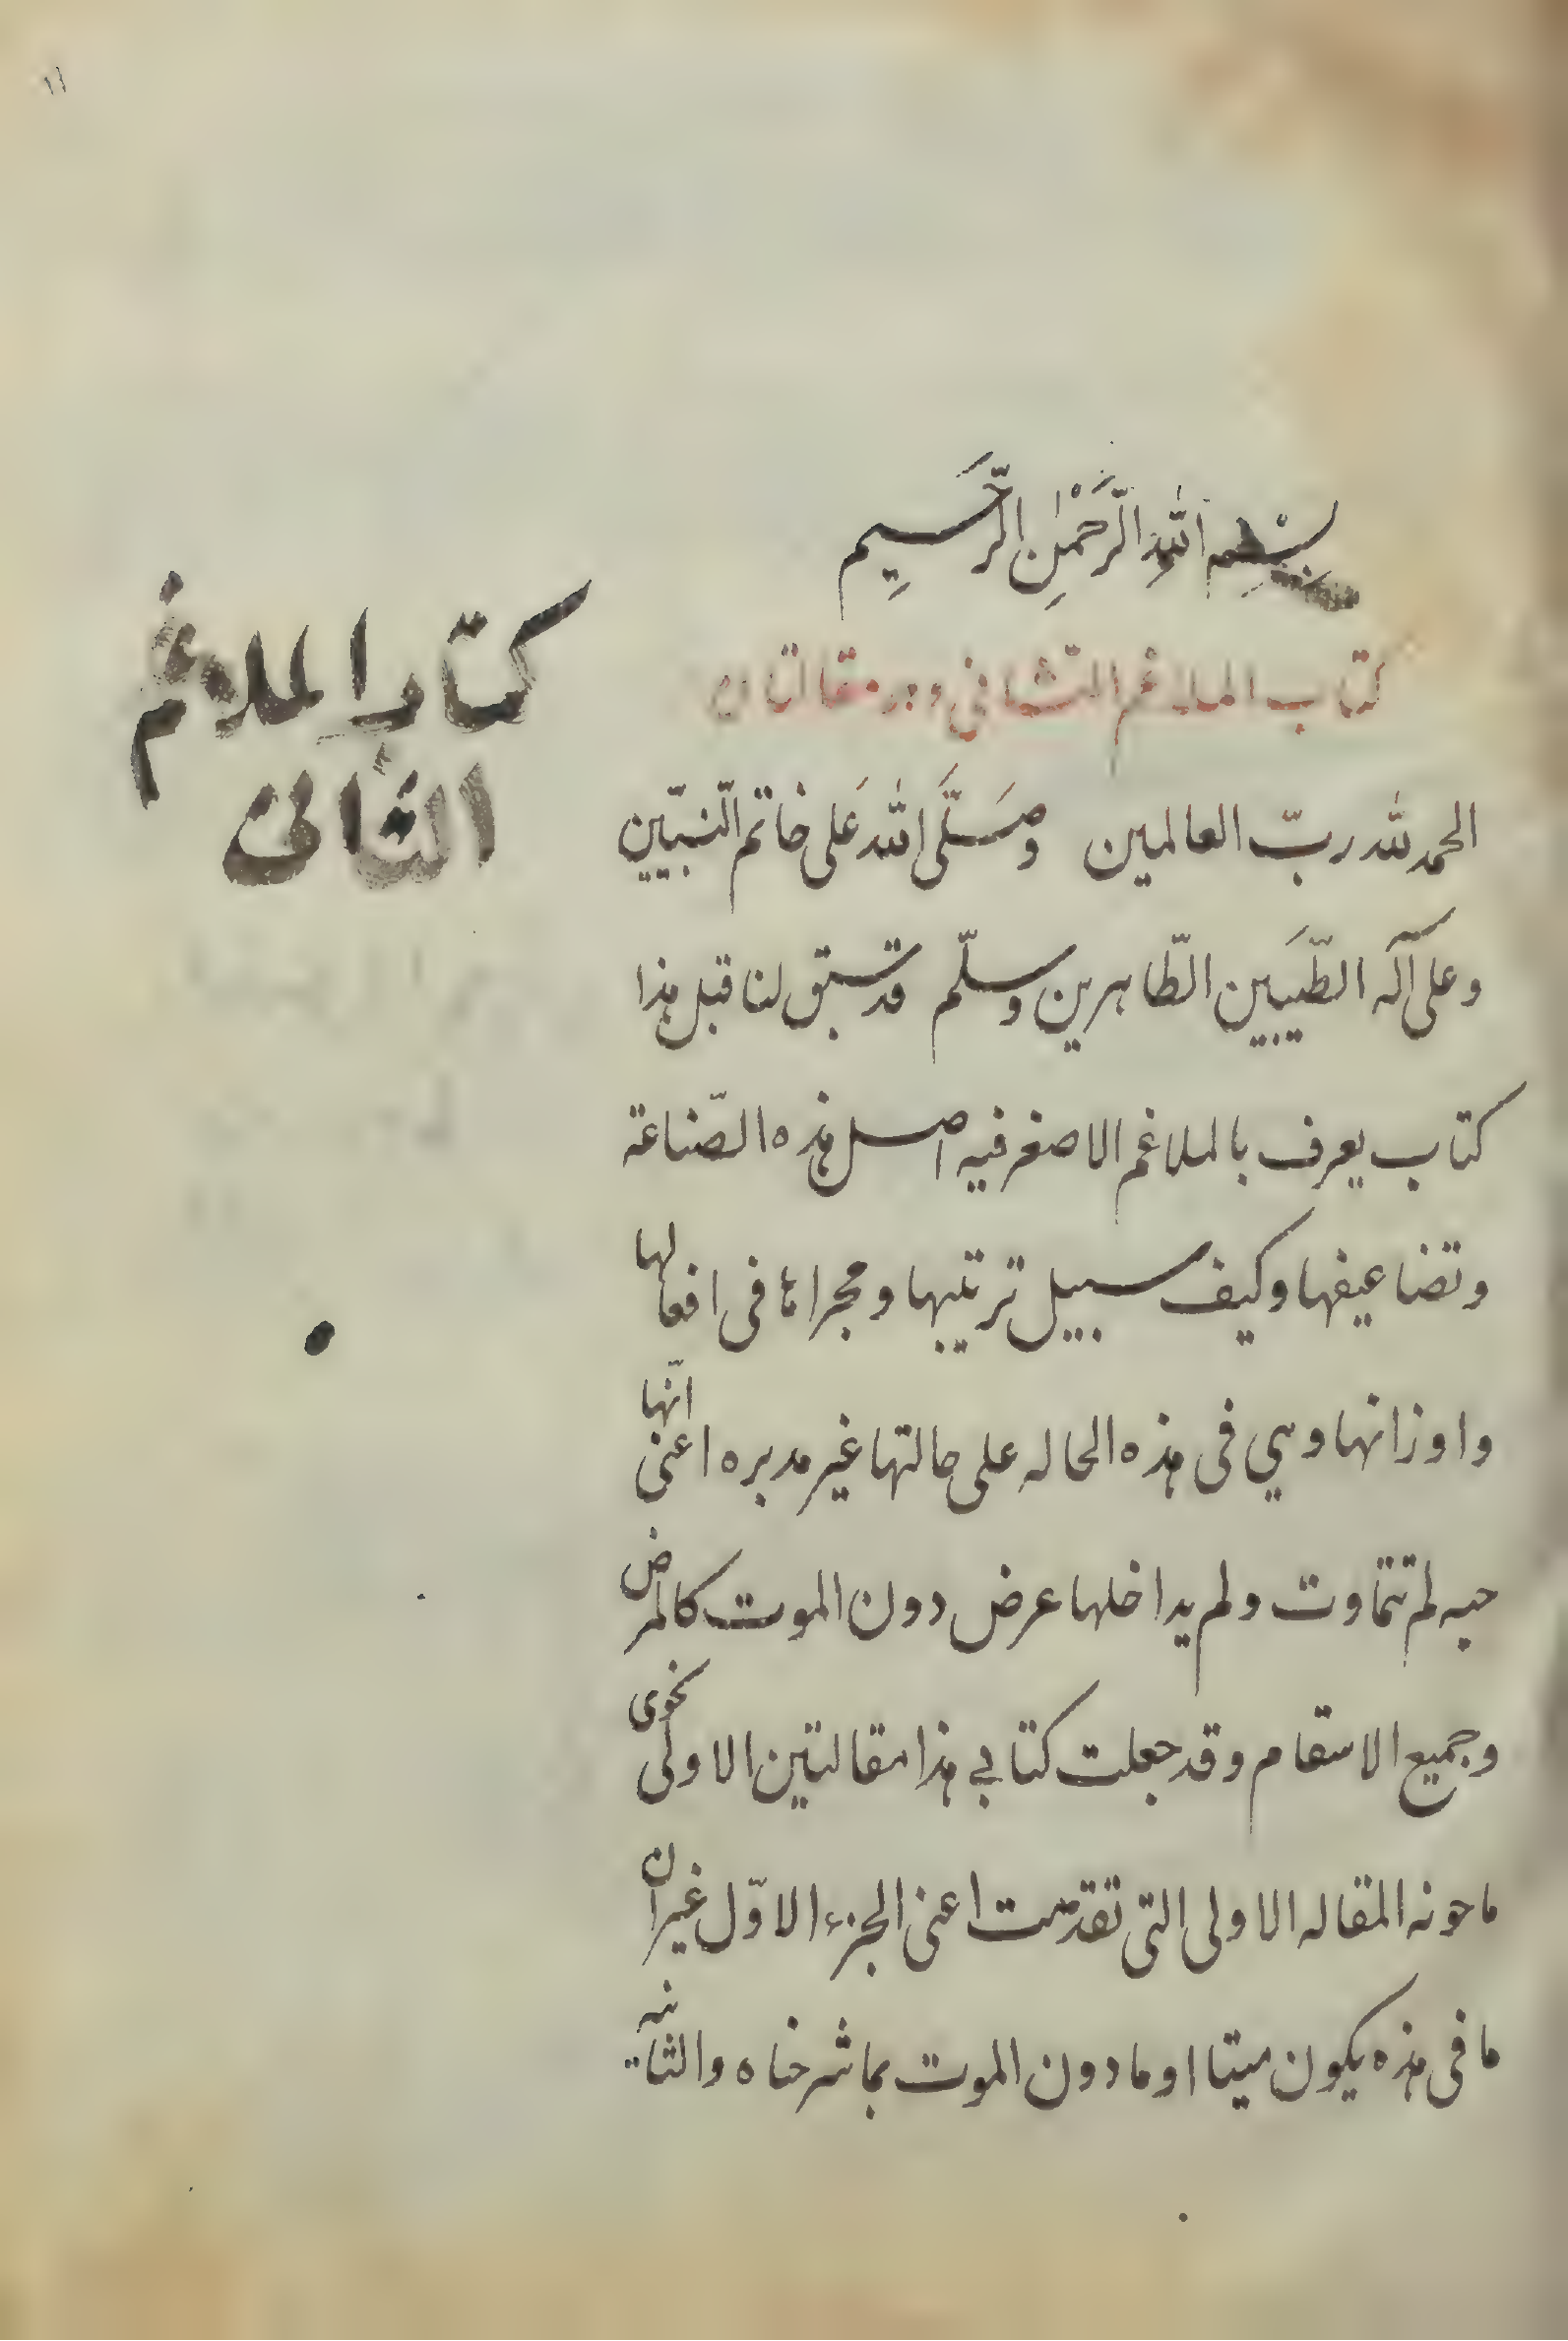 ١١
بِسْمِ اللهِ الرَّحْمٰنِ الرَّحِيمِ
كتاب الملاغم الثانى وهو مقالتان
كتاب الملاغم
الثانى
الحمد لله ربّ العالمين وصَلَّى الله عَلى خاتم النّبيّين
وعلى آله الطّيبَين الطّاهرين وسلّم قد سبق لنا قبل هذا
كتاب يعرف بالملاغم الاصغر فيه اصل هذه الصّناعة
وتضاعيفها وكيف سبيل ترتيبها ومجراها فى افعالها
واوزانها وهي فى هذه الحاله على حالتها غير مدبره اعنى انّها
حيه لم تتماوت ولم يداخلها عرض دون الموت كالمرض
وجميع الاسقام وقد جعلت كتابي هذا مقالتين الاولى نحوى
ما حوته المقاله الاولى التى تقدمت اعنى الجزء الاوّل غير ان
ما فى هذه يكون ميتا او ما دون الموت بما شرحناه والثانيه